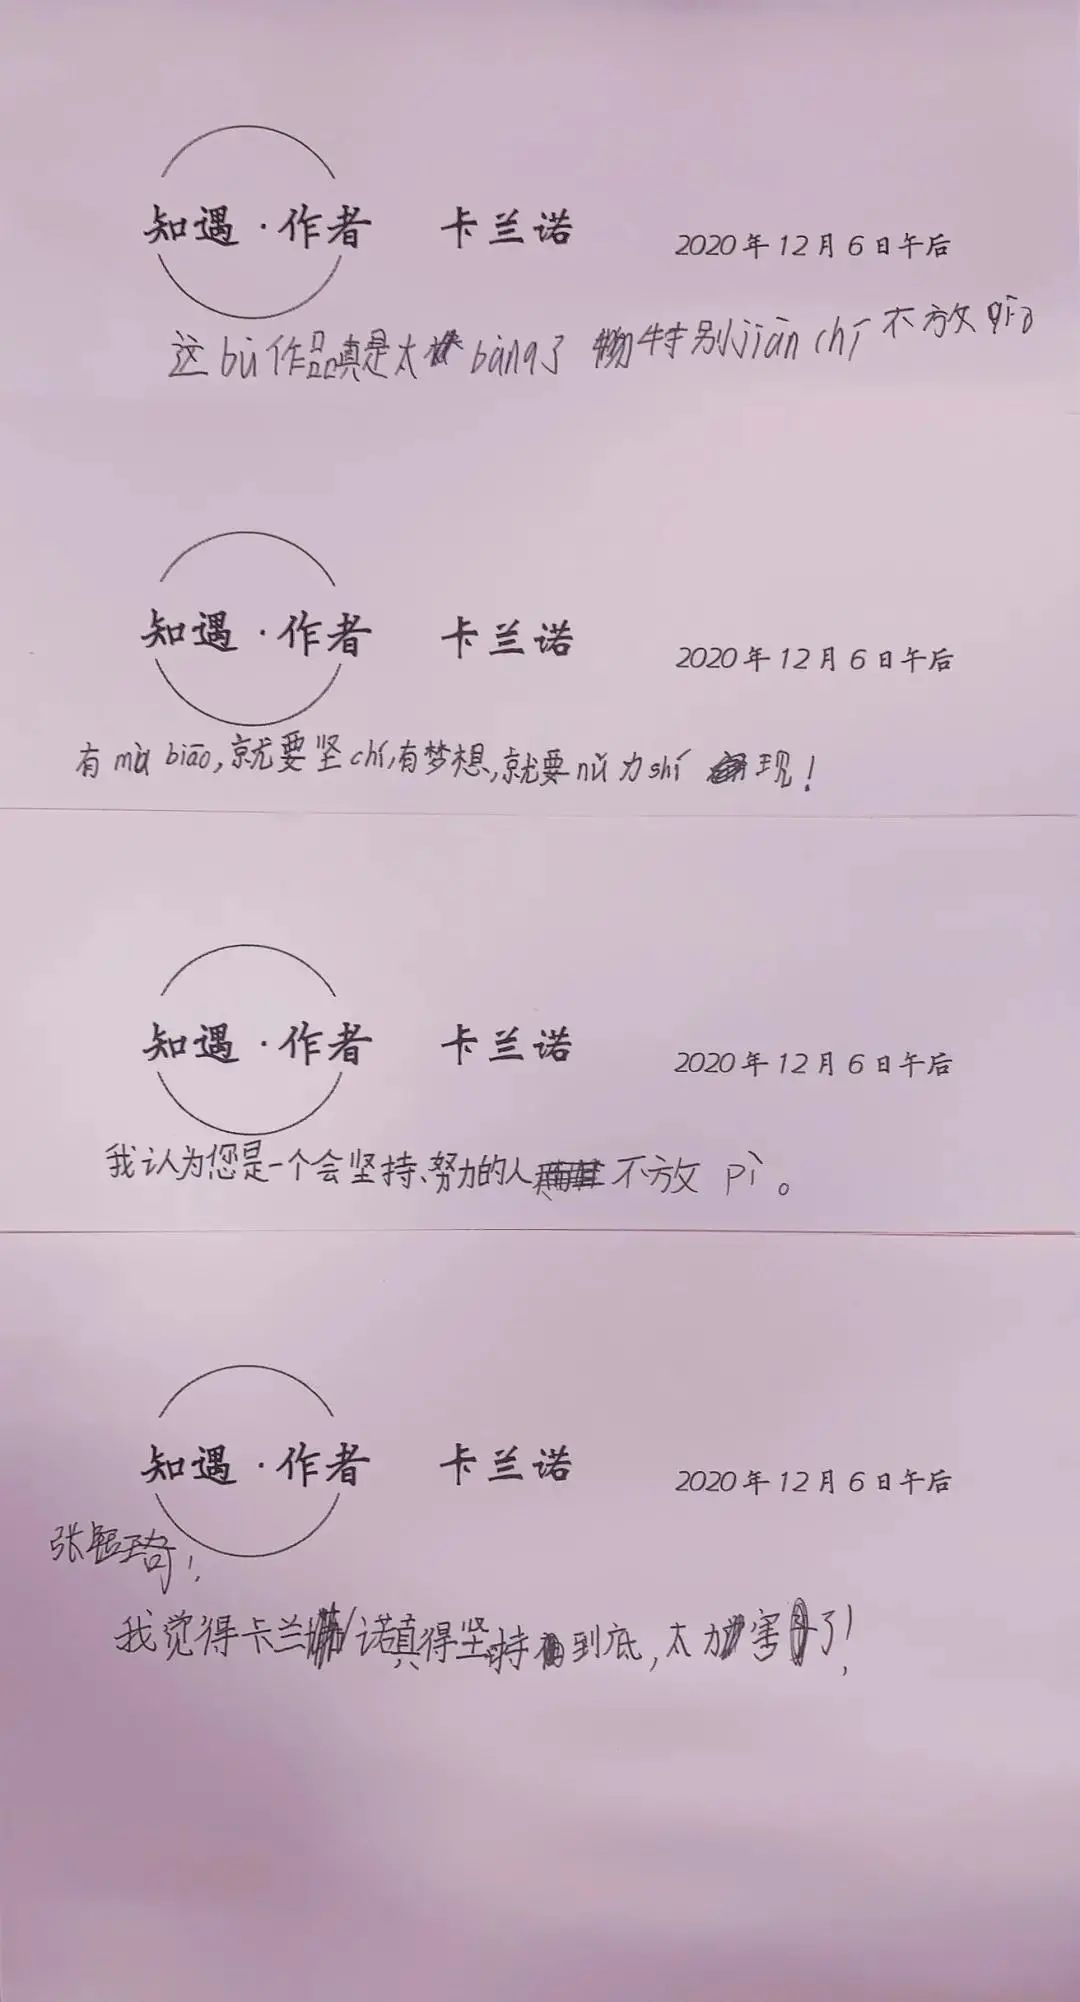 知遇·作者 卡兰诺 2020年12月6日午后
这bù作品真是太bàng了 特别jiān chí不放qì
知遇·作者 卡兰诺 2020年12月6日午后
有mù biāo,就要坚chí,有梦想,就要nǔ力shí现!
知遇·作者 卡兰诺 2020年12月6日午后
我认为您是一个会坚持、努力的人不放pì。
知遇·作者 卡兰诺 2020年12月6日午后
张琦!
我觉得卡兰诺真得坚持到底,太害了!